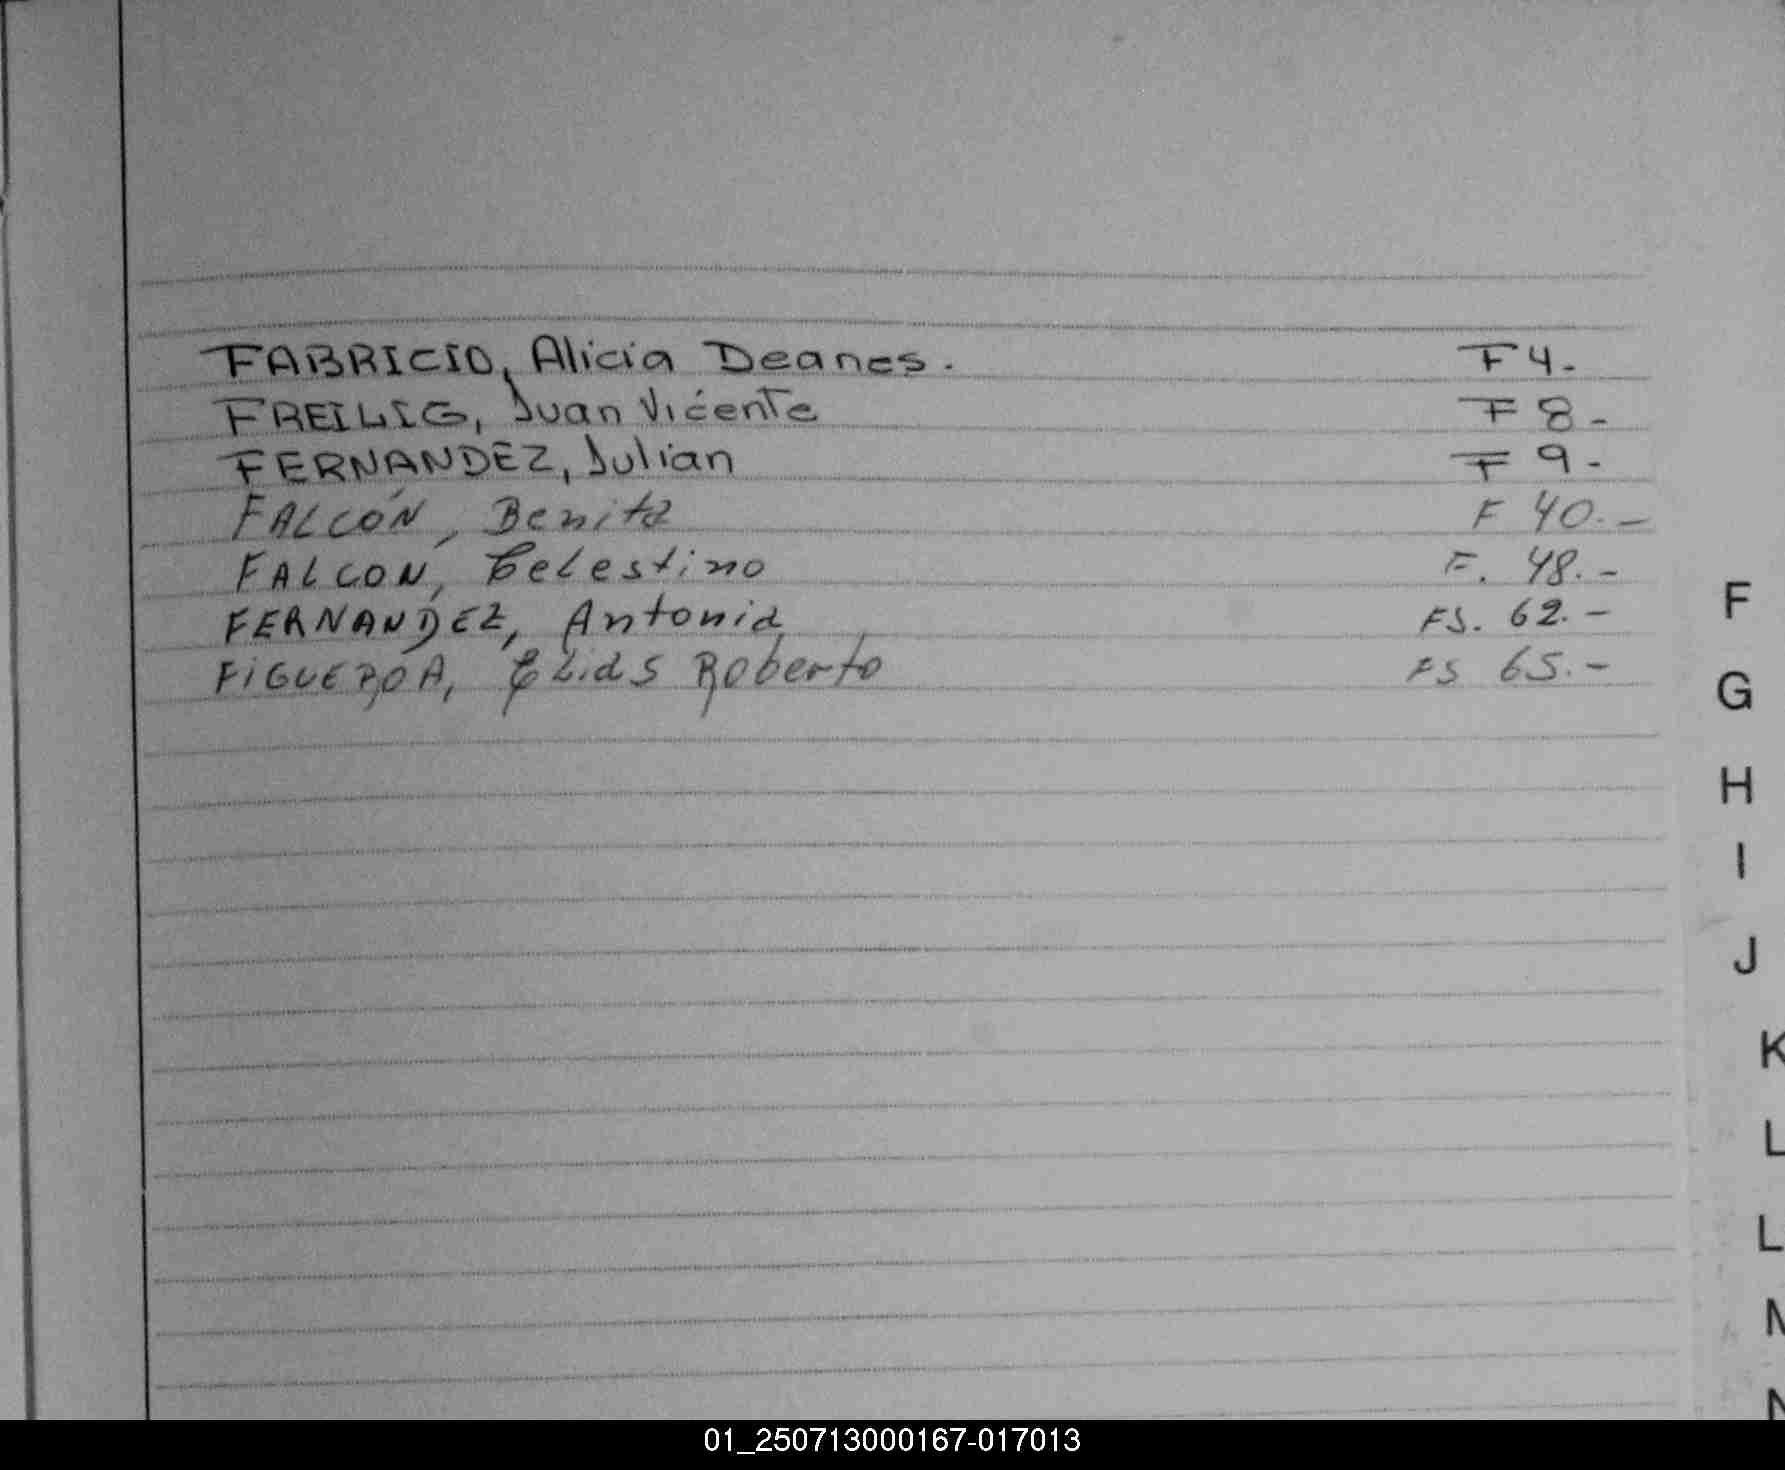 FABRICIO, Alicia Deanes. F 4.
FREILIG, Juan Vicente F 8-
FERNANDEZ, Julian F 9-
FALCÓN, Benita F 40.-
FALCON, Celestino F. 48.-
FERNANDEZ, Antonia FS. 62.-
FIGUEROA, Elias Roberto FS 65.-
F
G
H
I
J
K
L
L
N
N
01_250713000167-017013